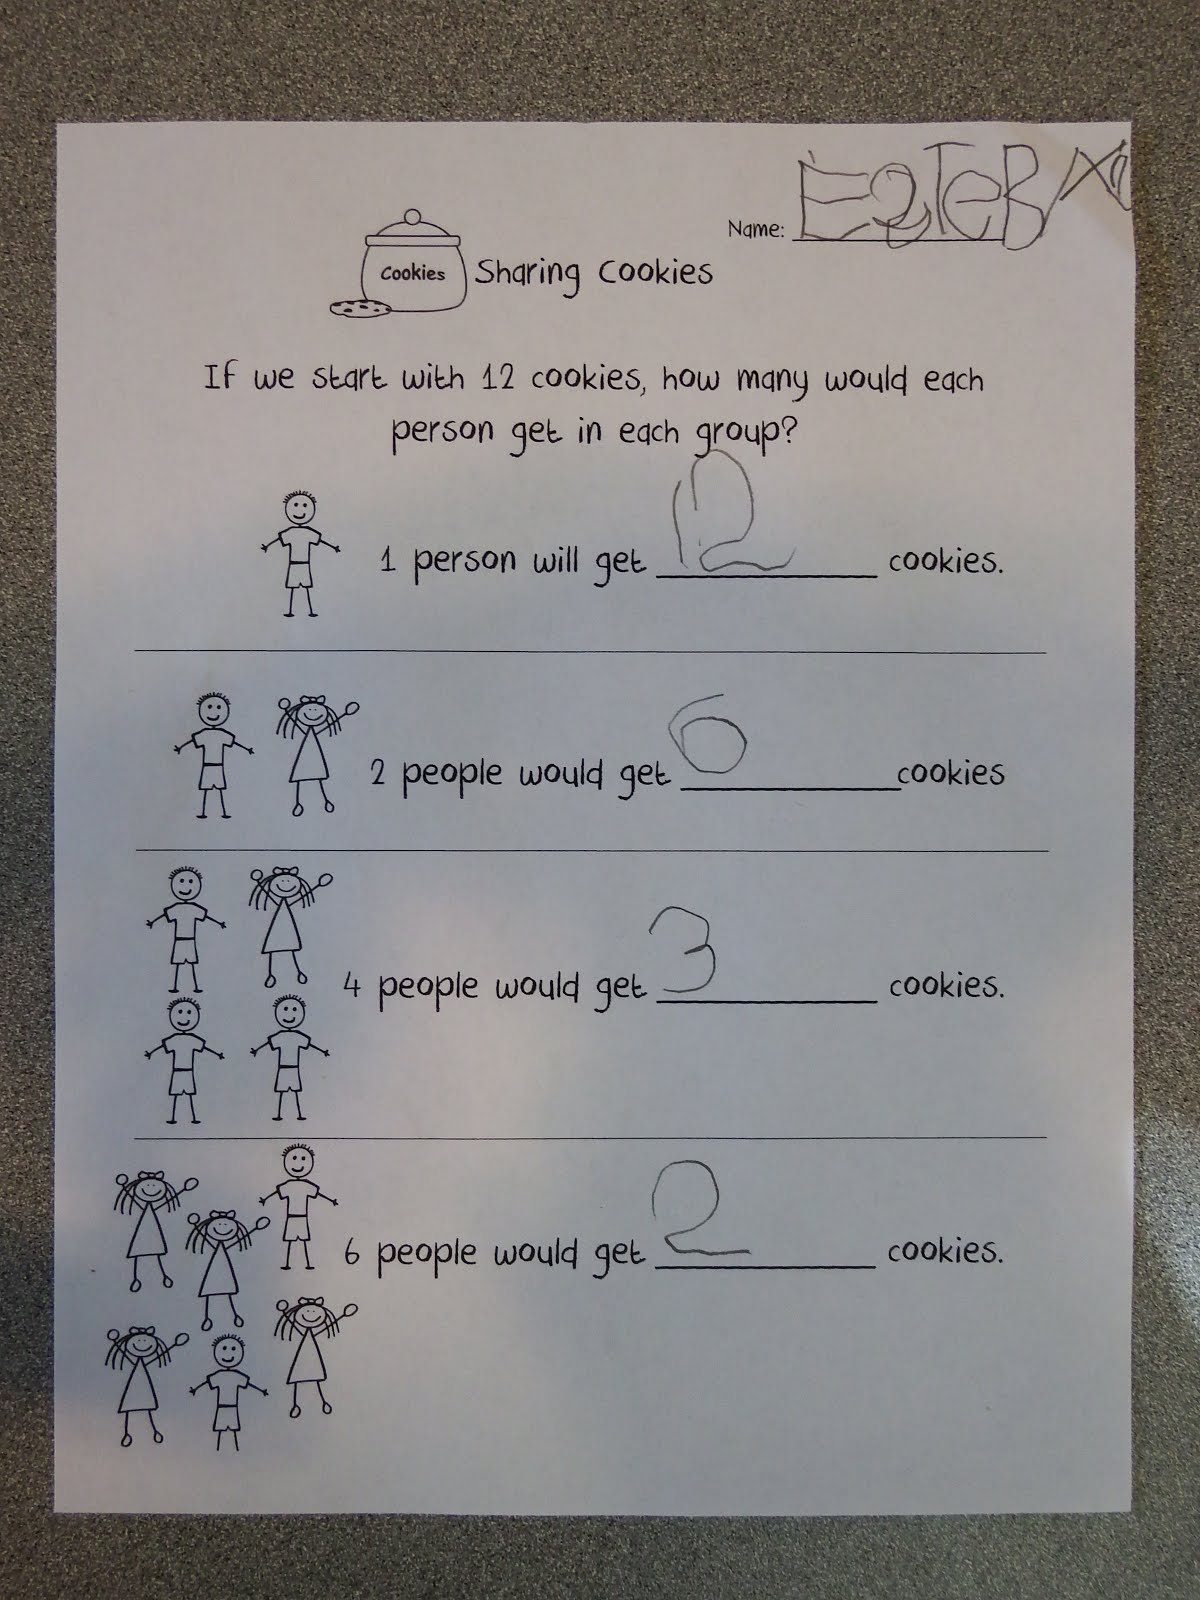 Name: EsTeBAn
Cookies Sharing Cookies
If we start with 12 cookies, how many would each
person get in each group?
1 person will get 12 cookies.
2 people would get 6 cookies
4 people would get 3 cookies.
6 people would get 2 cookies.